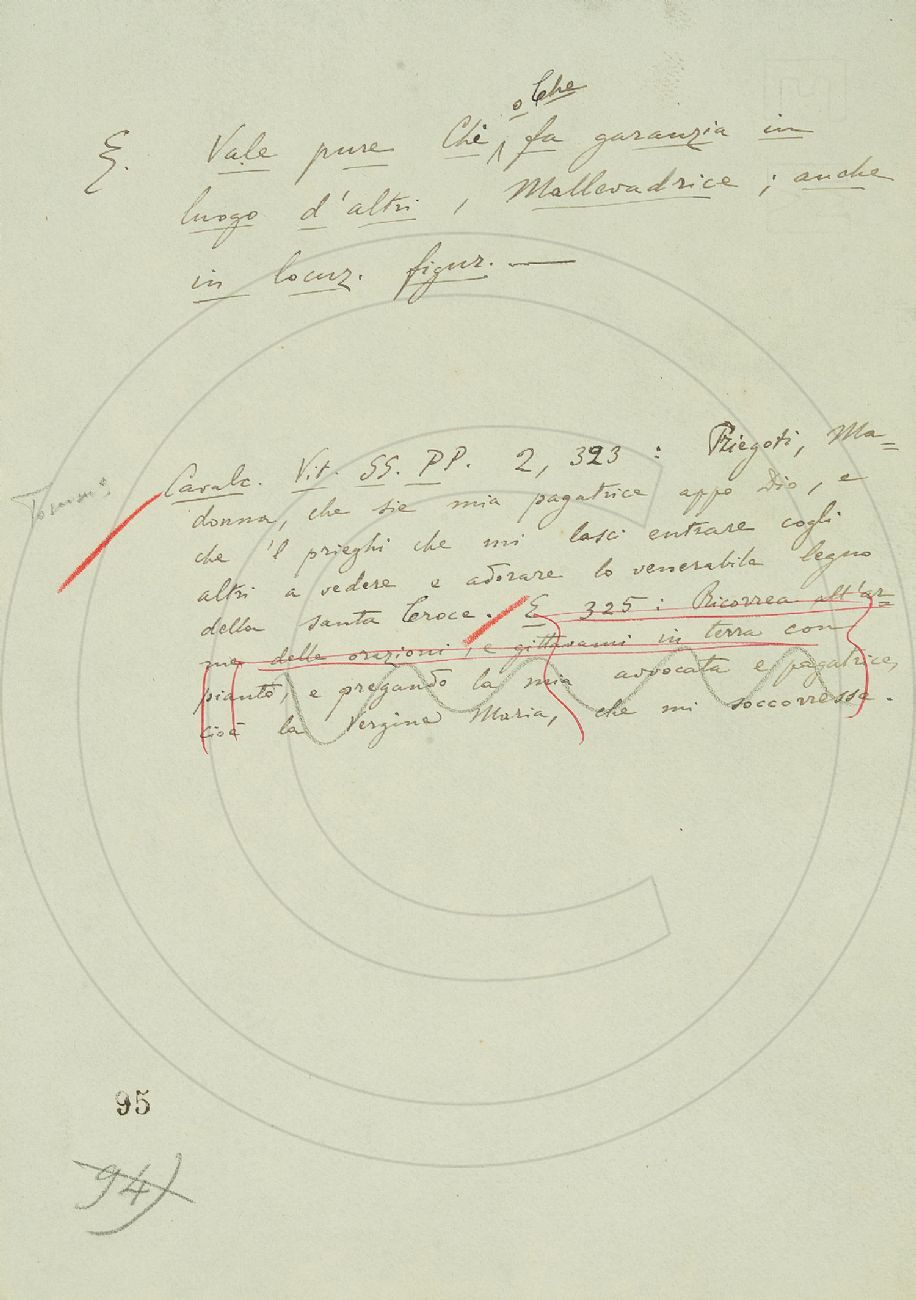 o Che
E. Vale pure Chi fa garanzia in
luogo d'altri, Mallevadrice; anche
in locuz. figur. —
Cavalc. Vit. SS. PP. 2, 323: Priegoti, Ma=
donna, che sie mia pagatrice appo Dio, e
che 'l prieghi che mi lasci entrare cogli
altri a vedere e adorare lo venerabile legno
della santa Croce. E 325: Ricorrea all'ar=
me delle orazioni, e gittavami in terra con
pianto, e pregando la mia avvocata e pagatrice,
cioè la Vergine Maria, che mi soccorresse.
95
94)